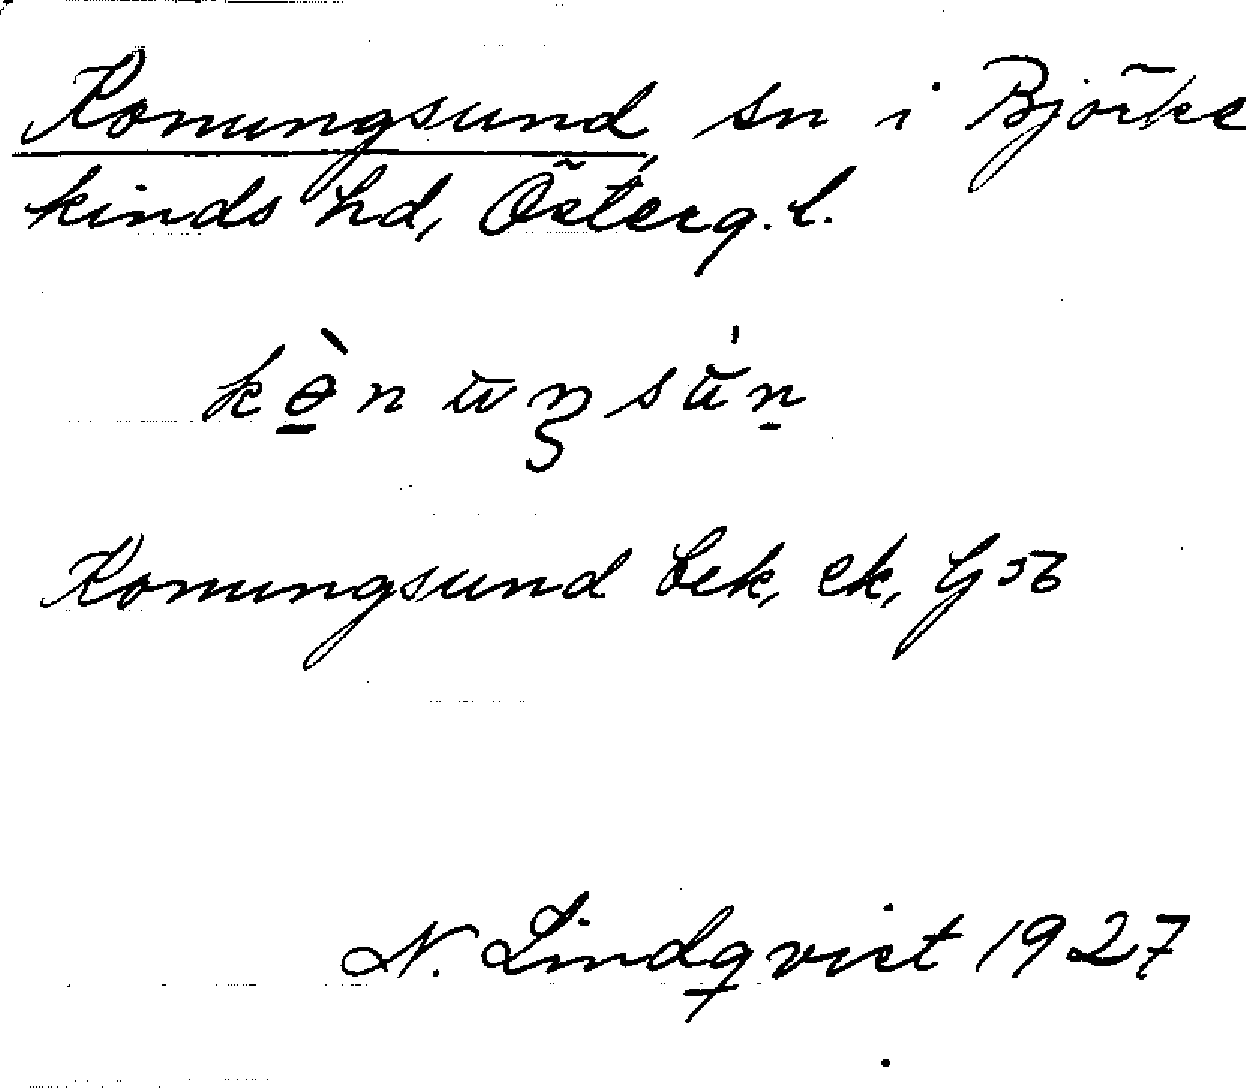 Konungsund, sn i Björke
kinds hd, Österg. l.
kɵ̠̀nuŋsùn̠
Konungsund Lek, ek, G 56
N. Lindqvist 1927